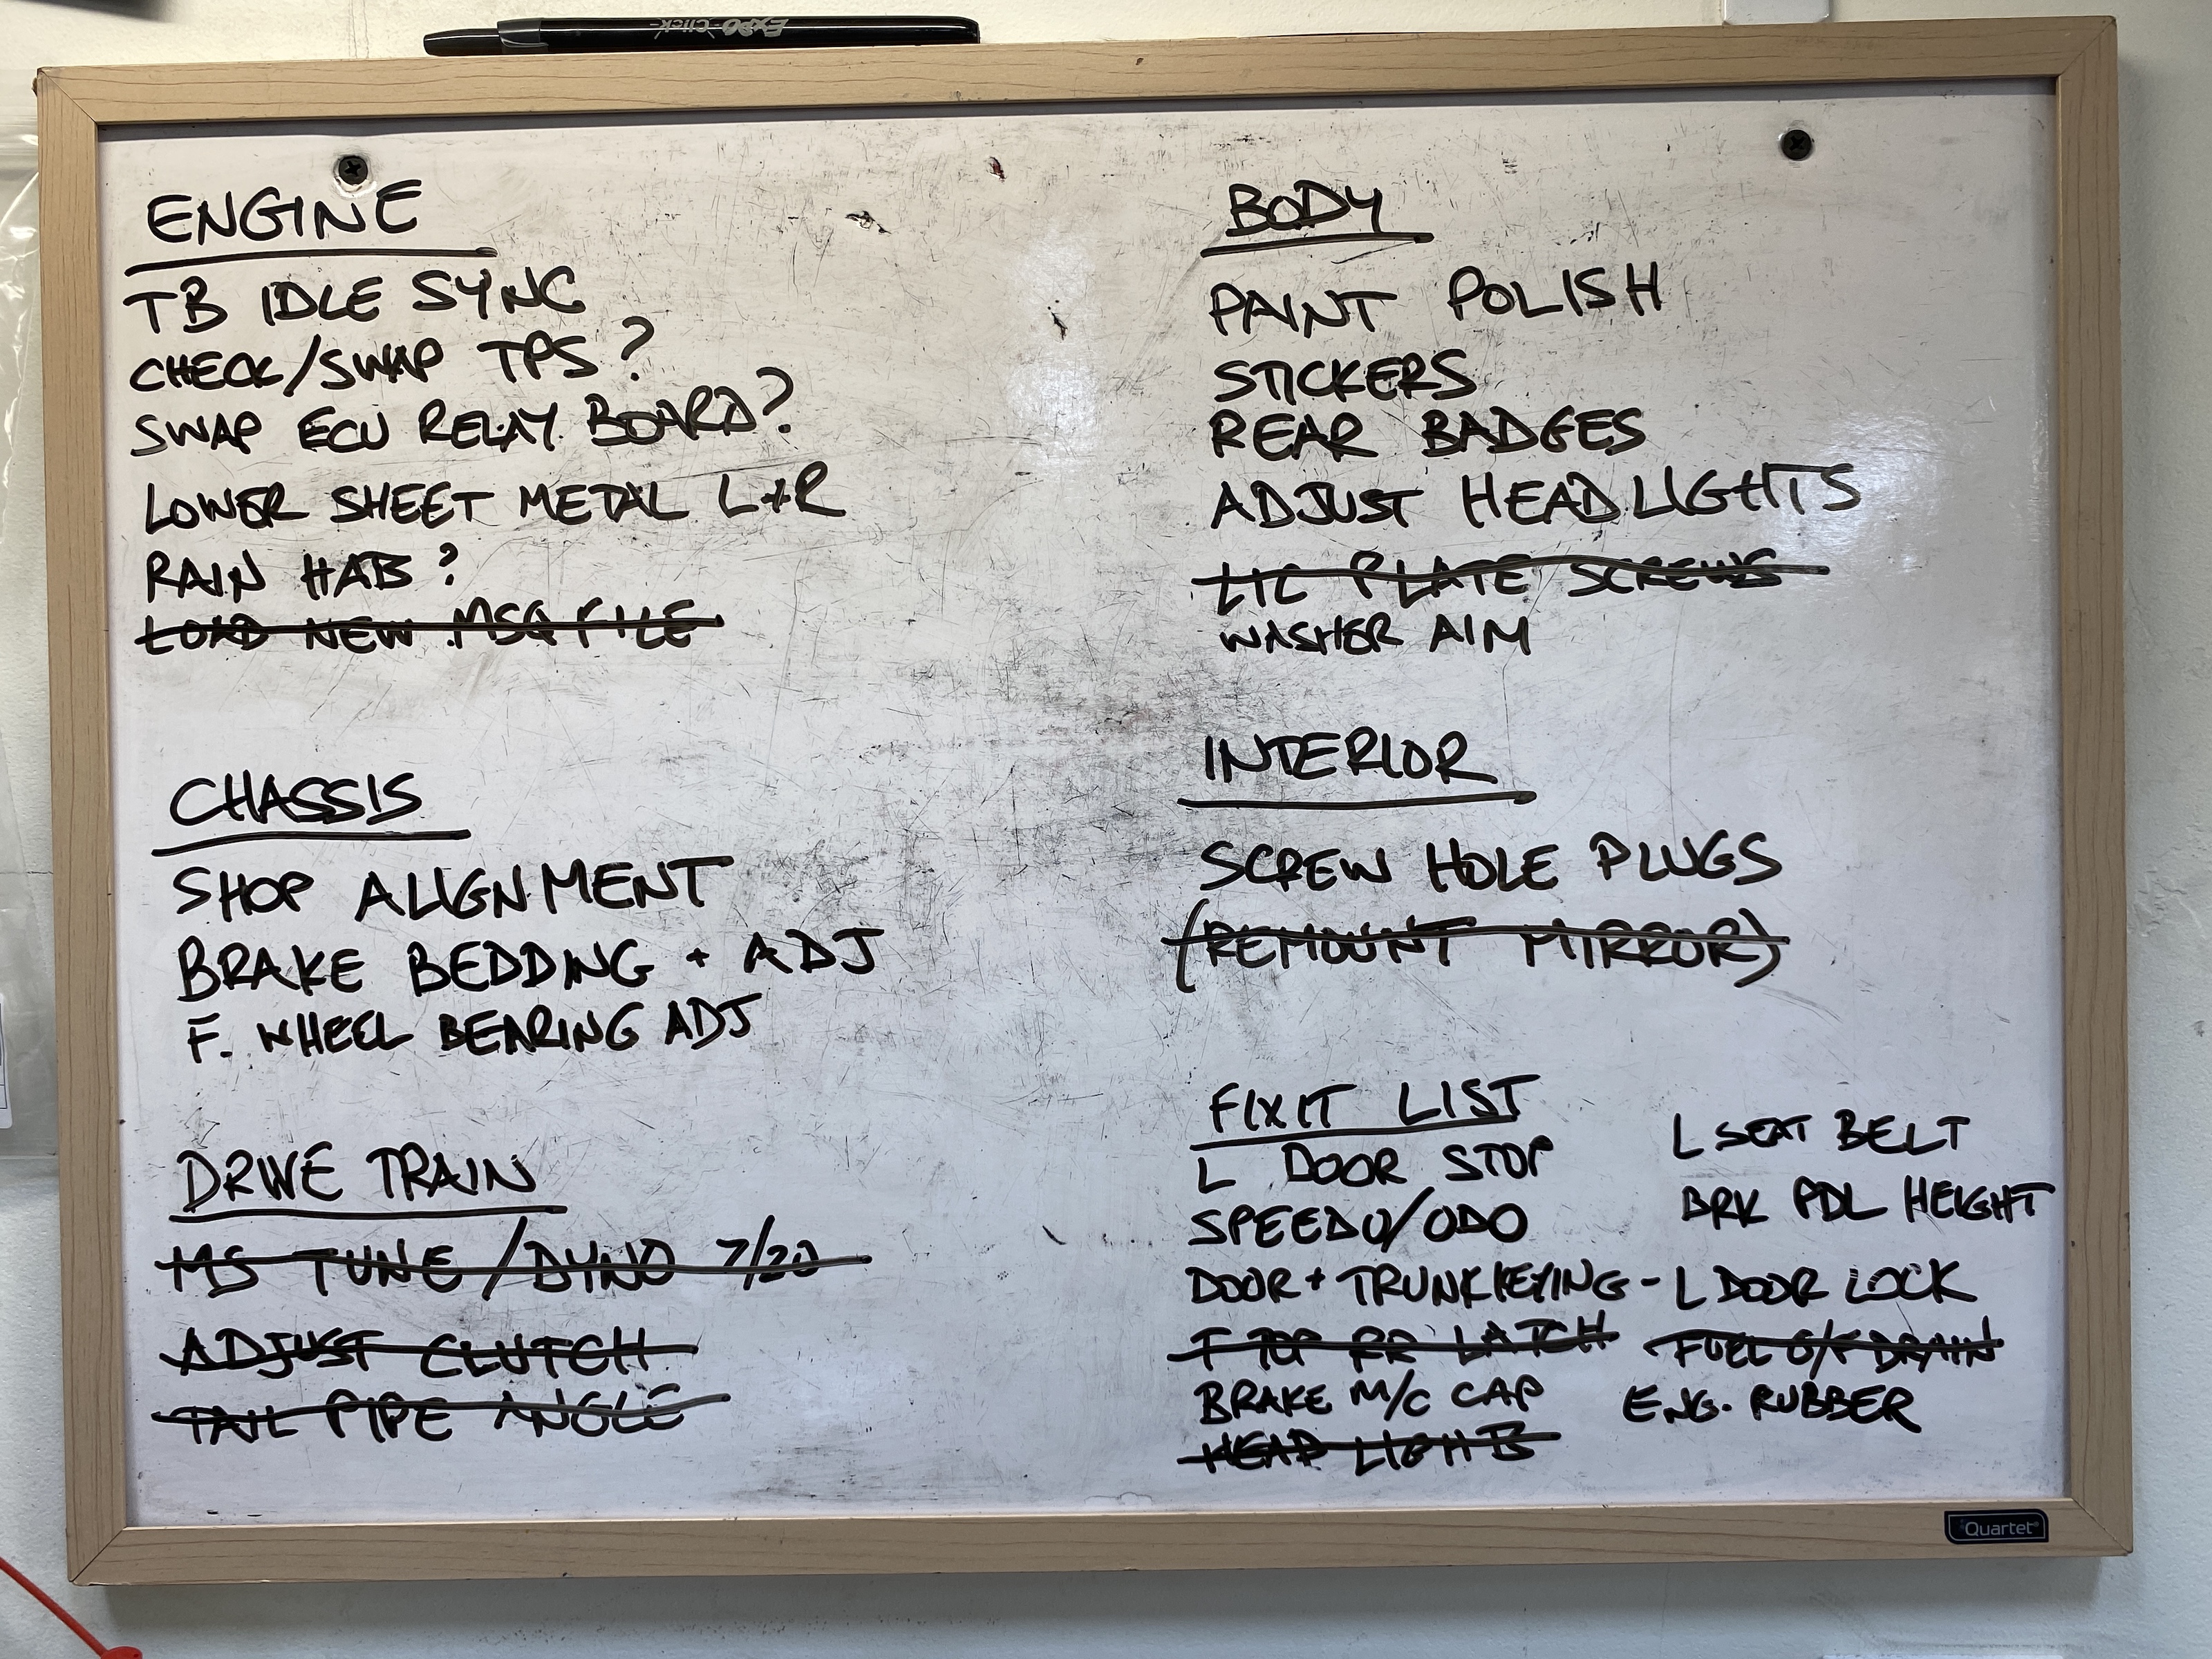 EXPO Click
ENGINE
TB IDLE SYNC
CHECK/SWAP TPS?
SWAP ECU RELAY BOARD?
LOWER SHEET METAL L+R
RAIN HAT?
LOAD NEW .MSQ FILE
CHASSIS
SHOP ALIGNMENT
BRAKE BEDDING + ADJ
F. WHEEL BEARING ADJ
DRIVE TRAIN
MS TUNE/DYNO 7/20
ADJUST CLUTCH
TAIL PIPE ANGLE
BODY
PAINT POLISH
STICKERS
REAR BADGES
ADJUST HEADLIGHTS
LIC PLATE SCREWS
WASHER AIM
INTERIOR
SCREW HOLE PLUGS
(REMOUNT MIRROR)
FIXIT LIST
L DOOR STOP
SPEEDO/ODO
DOOR + TRUNK KEYING - L DOOR LOCK
T TOP RR LATCH
BRAKE M/C CAP
HEAD LIGHTS
L SEAT BELT
BRK PDL HEIGHT
FUEL O/F DRAIN
ENG. RUBBER
Quartet